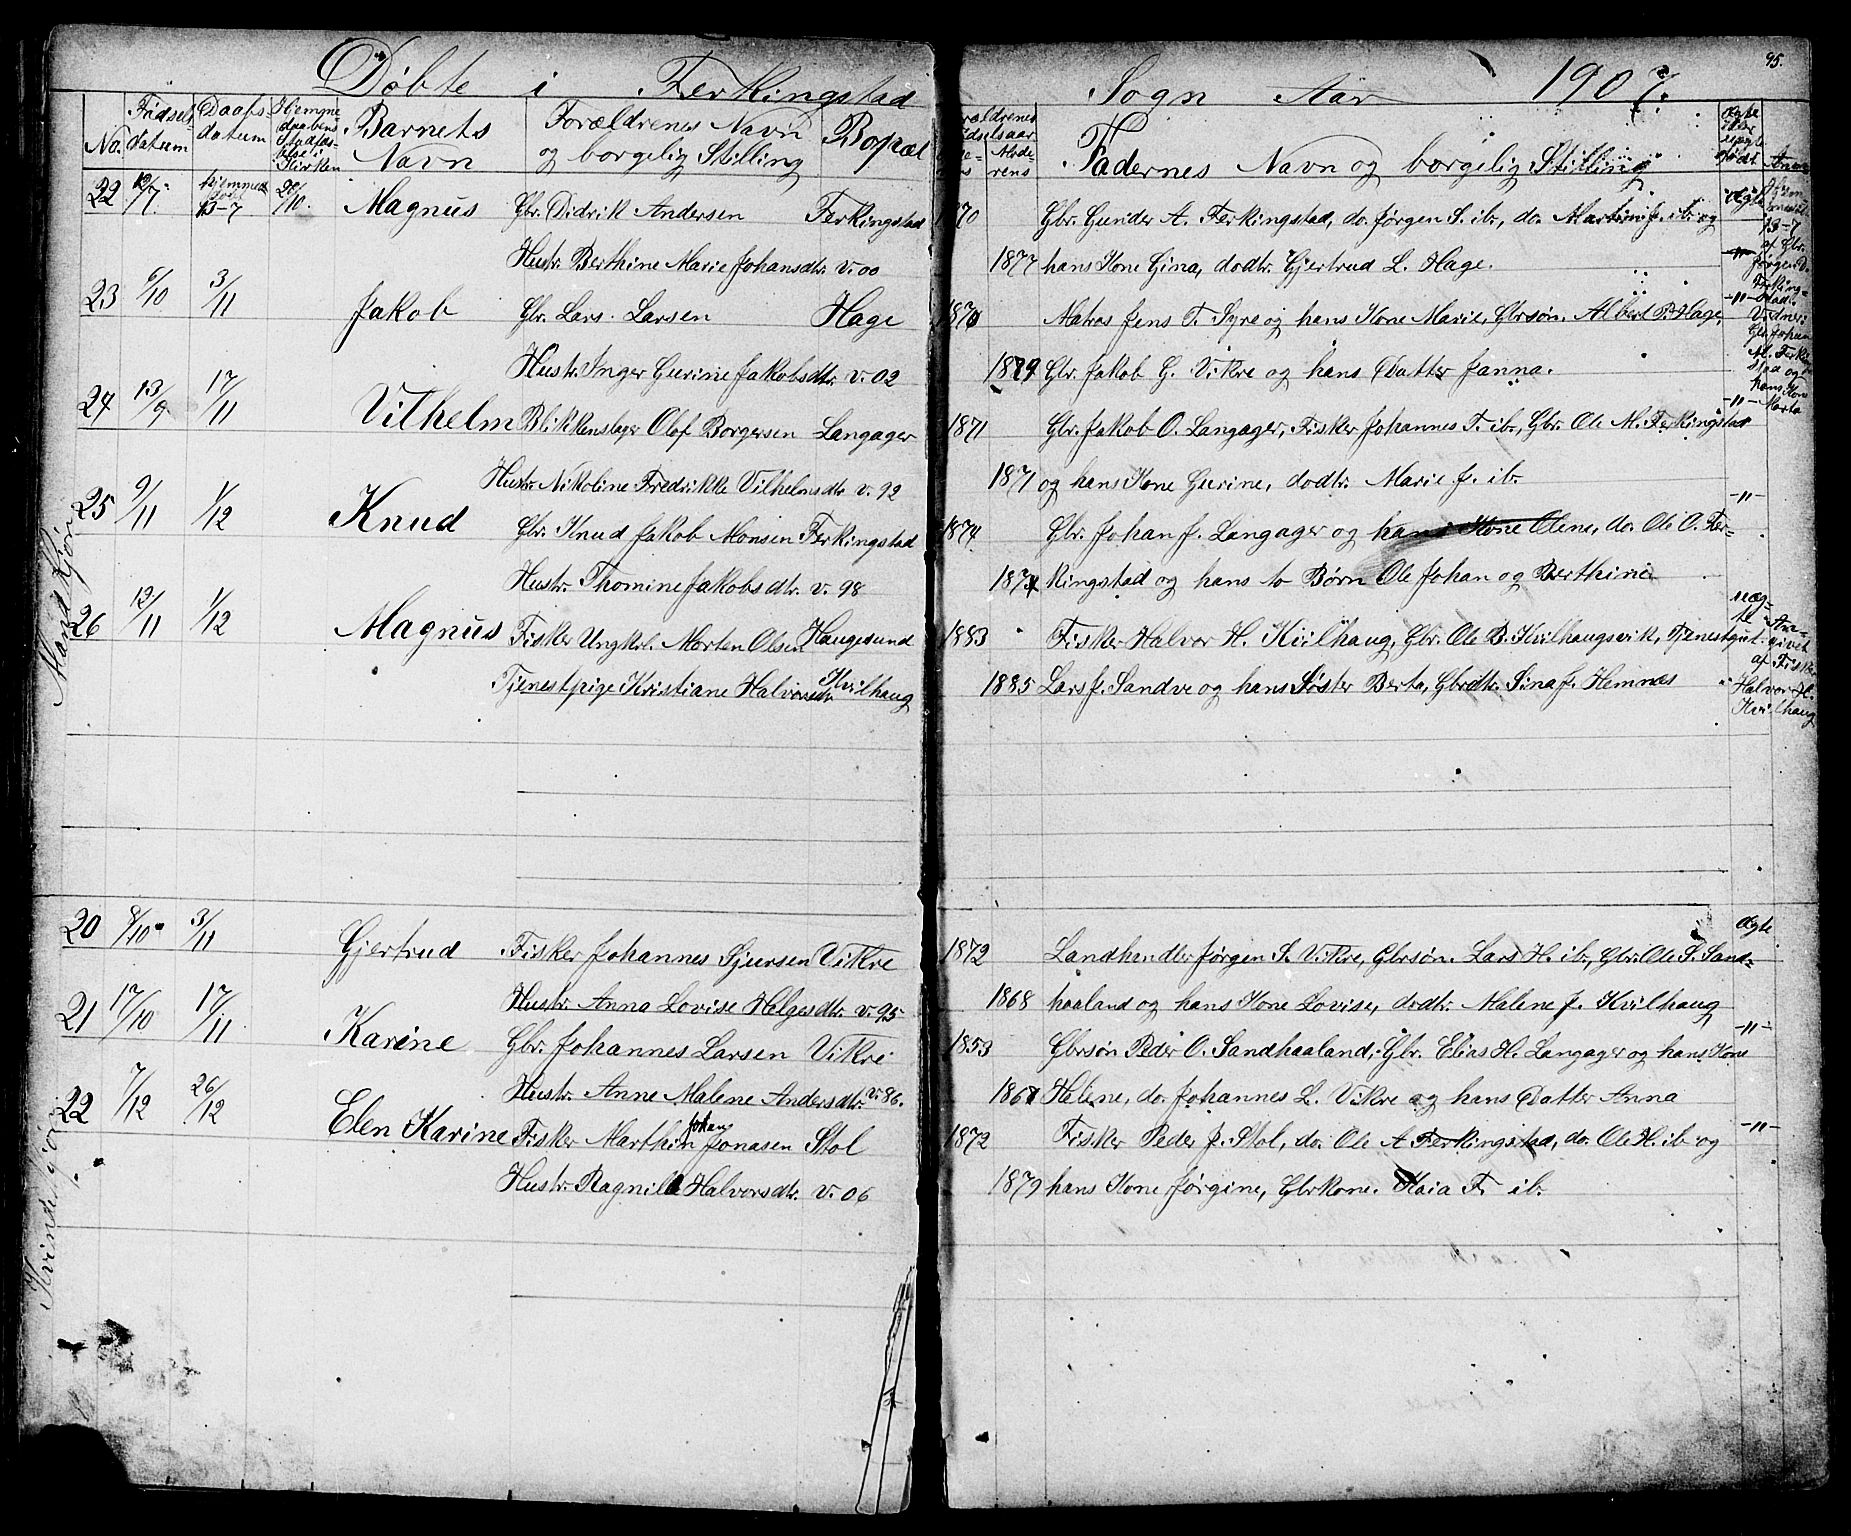 Døbte i Ferkingstad Sogn Aar 1907.
95.
No. Fødsels datum Daabs datum Hjemme daabens Stadfæs- telse i Kirken Barnets Navn Forældrenes Navn og borgelig Stilling Bopæl
Forældrenes Fødselsaar Mode- rens Fadernes Navn og borgelig Stilling Ægte eller uægte født
Mandkjøn
22 12/7 Hjemmed. døbt 13-7 20/10. Magnus Gbr. Didrik Andersen Ferkingstad 1870 Gbr. Gunder A. Ferkingstad, do. Jørgen S. ib., do. Martin J. ib. og Ægte
Hustr. Berthine Marie Johansdtr. v. 00 1877 hans Kone Gina, dodtr. Gjertrud L. Hage.
Hjem- medøbt 13-7 af Gbr. Jørgen S. Ferking- stad. Vidner: Gbr. Johan M. Ferking- stad og hans Kone Marta
23 6/10 3/11 Jakob Gbr. Lars Larsen Hage 1870 Matros Jens T. Syre og hans Kone Marie, Gbrsøn. Albert P. Hage, -"-
Hustr. Inger Gurine Jakobsdtr. v. 02 1879 Gbr. Jakob G. Vikre og hans Datter Janna.
24 13/9 17/11 Vilhelm Blikkenslager Olof Borgersen Langager 1871 Gbr. Jakob O. Langager, Fisker Johannes T. ib., Gbr. Ole M. Ferkingstad -"-
Hustr. Nikoline Fredrikke Vilhelmsdtr. v. 92 1871 og hans Kone Gurine, dodtr. Marie J. ib.
25 9/11 1/12 Knud Gbr. Knud Jakob Monsen Ferkingstad 1874 Gbr. Johan J. Langager og hans Kone Olene, do. Ole O. Fer- -"-
Hustr. Thomine Jakobsdtr. v. 98 1874 kingstad og hans to Børn Ole Johan og Berthine
26 12/11 1/12 Magnus Fisker Ungkrl. Morten Olsen Haugesund 1883 Fisker Halvor H. Kvilhaug, Gbr. Ole B. Kvilhaugsvik, Tjenestgut. uæg- te
Tjenestpige Kristiane Halvorsdtr. Kvilhaug 1885 Lars J. Sandve og hans Søster Berta, Gbrdtr. Sina J. Hemnes
An- givet af Fisker Halvor H. Kvilhaug
Kvindekjøn
20 8/10 3/11 Gjertrud Fisker Johannes Sjursen Vikre 1872 Landhandler Jørgen S. Vikre, Gbrsøn. Lars H. ib., Gbr. Ole S. Sand- Ægte
Hustr. Anna Lovise Helgesdtr. v. 95 1868 haaland og hans Kone Lovise, dodtr. Malene J. Kvilhaug
21 17/10 17/11 Karine Gbr. Johannes Larsen Vikre 1853 Gbrsøn Peder O. Sandhaaland, Gbr. Elias H. Langager og hans Kone -"-
Hustr. Anne Malene Andersdtr. v. 86. 1861 Helene, do. Johannes L. Vikre og hans Datter Anna
22 7/12 26/12 Elen Karine Fisker Marthin Johan Jonasen Stol 1872 Fisker Peder J. Stol, do. Ole A. Ferkingstad, do. Ole H. ib. og -"-
Hustr. Ragnild Halvorsdtr. v. 06 1879 hans Kone Jørgine, Gbrkone. Kaia F. ib.